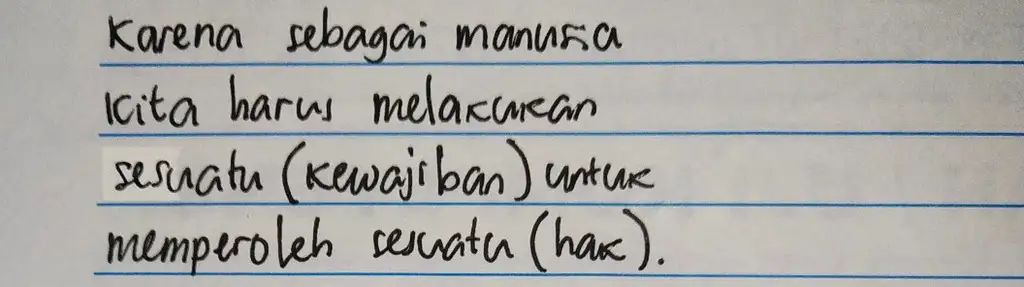 Karena sebagai manusia
kita harus melakukan
sesuatu (kewajiban) untuk
memperoleh sesuatu (hak).